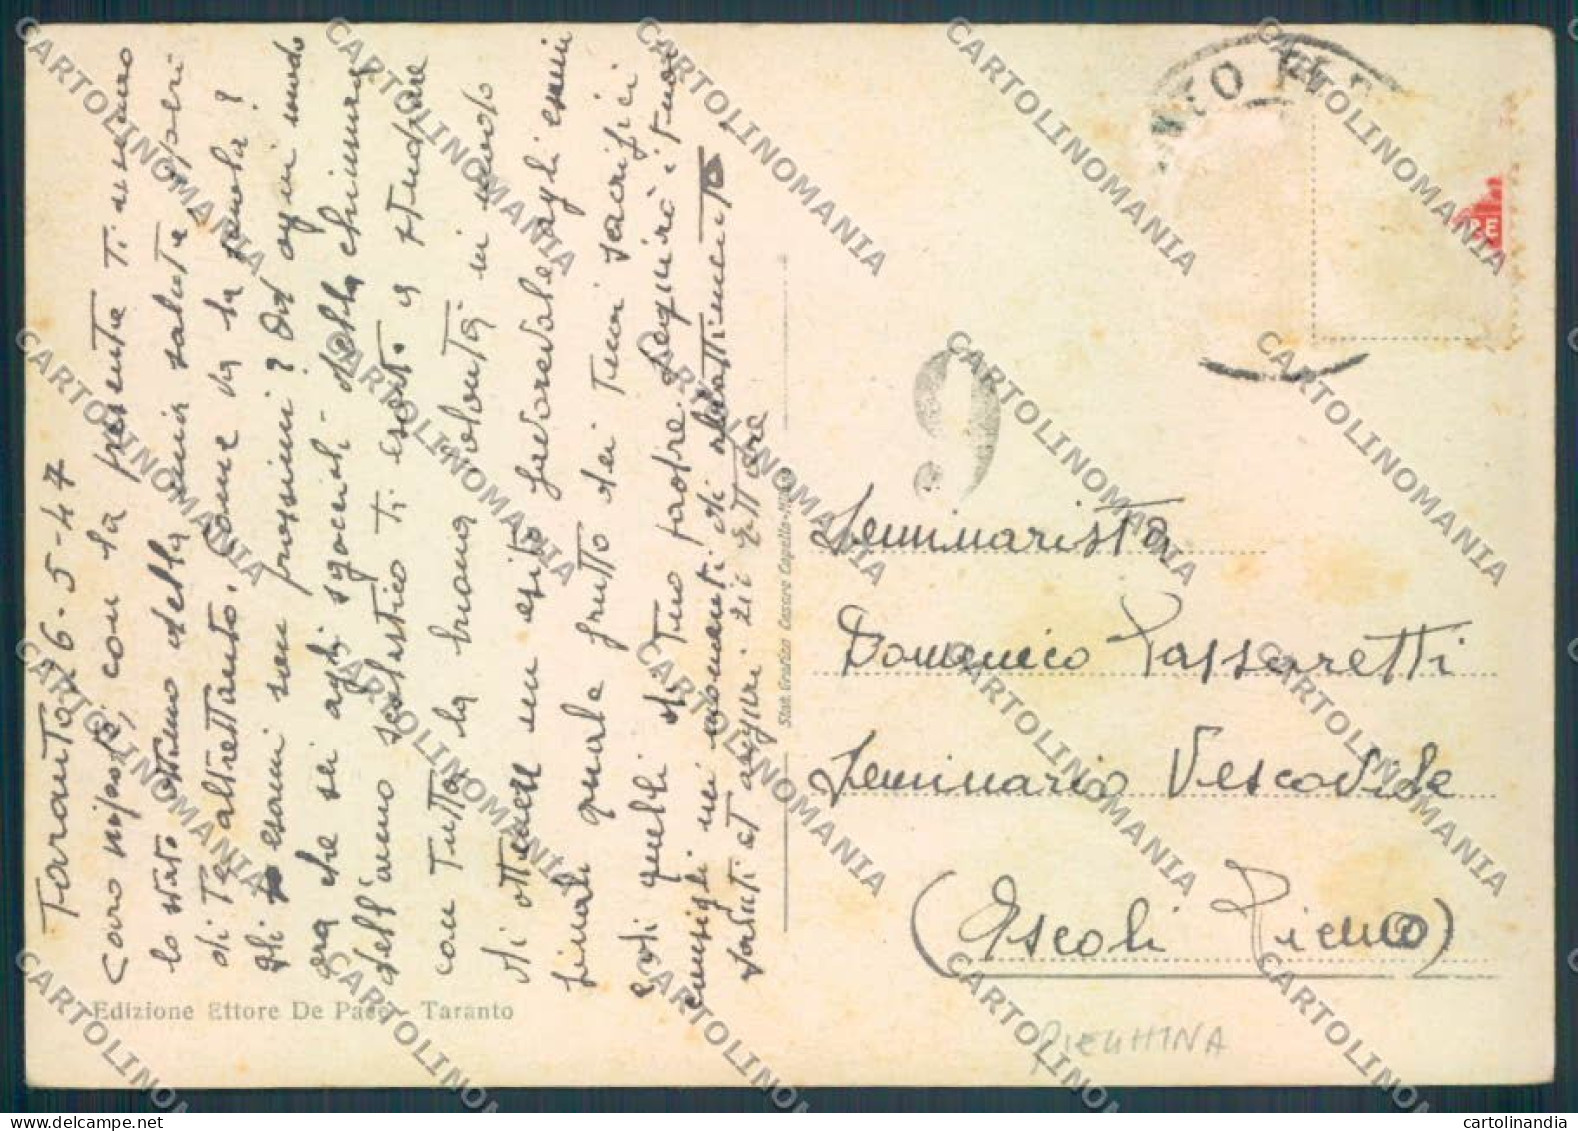 Taranto, 26-5-47
Caro nipote, con la presente ti assicuro
lo stato ottimo della mia salute e speri
di Te altrettanto. Come va la scuola?
Gli esami son prossimi? Ad ogni modo
ora che sei agli sgoccioli della chiusura
dell'anno scolastico ti esorto a studiare
con tutta la buona volontà in modo
di ottenere un esito favorevole agli esami
finali quale frutto dei tuoi sacrifici
e di quelli di tuo padre. Seguirò i tuoi
consigli nei momenti di abbattimento.
Saluti et auguri zio Ettore
Edizione Ettore De Pace - Taranto
Stab. Grafico Cesare Capello - Milano
9
NTO FE
RE
Seminarista
Domenico Passaretti
Seminario Vescovile
(Ascoli Piceno)
PIEGHINA
CARTOLINOMANIA
cartolinandia